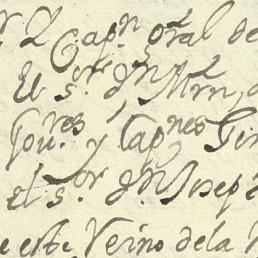 Y Cap.n Gral de
El s.or Dn Mrn, d
Gou.res y Capnes Gen
el s.or Dn Joseph
e este Reino de la N